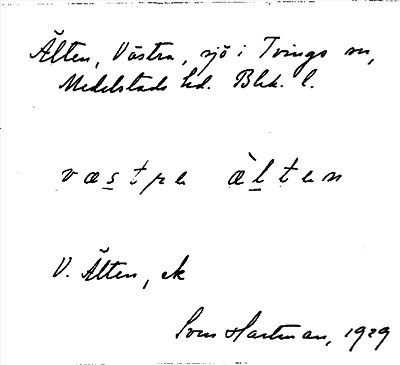 Älten, Västra, sjö i Tvings sn,
Medelstads hd. Blek. l.
væstre æ̀lten
V. Älten, ek
Sven Hartman, 1929